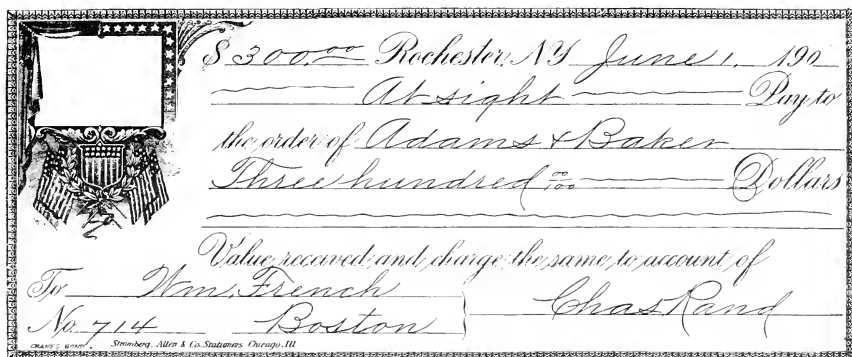 $ 300.00 Rochester, NY June 1. 190
At sight Pay to
the order of Adams & Baker
Three hundred 00/100 Dollars
Value received and charge the same to account of
To Wm. French Chas Rand
No. 714 Boston
CRANE'S BOND Stromberg, Allen & Co. Stationers Chicago, Ill.